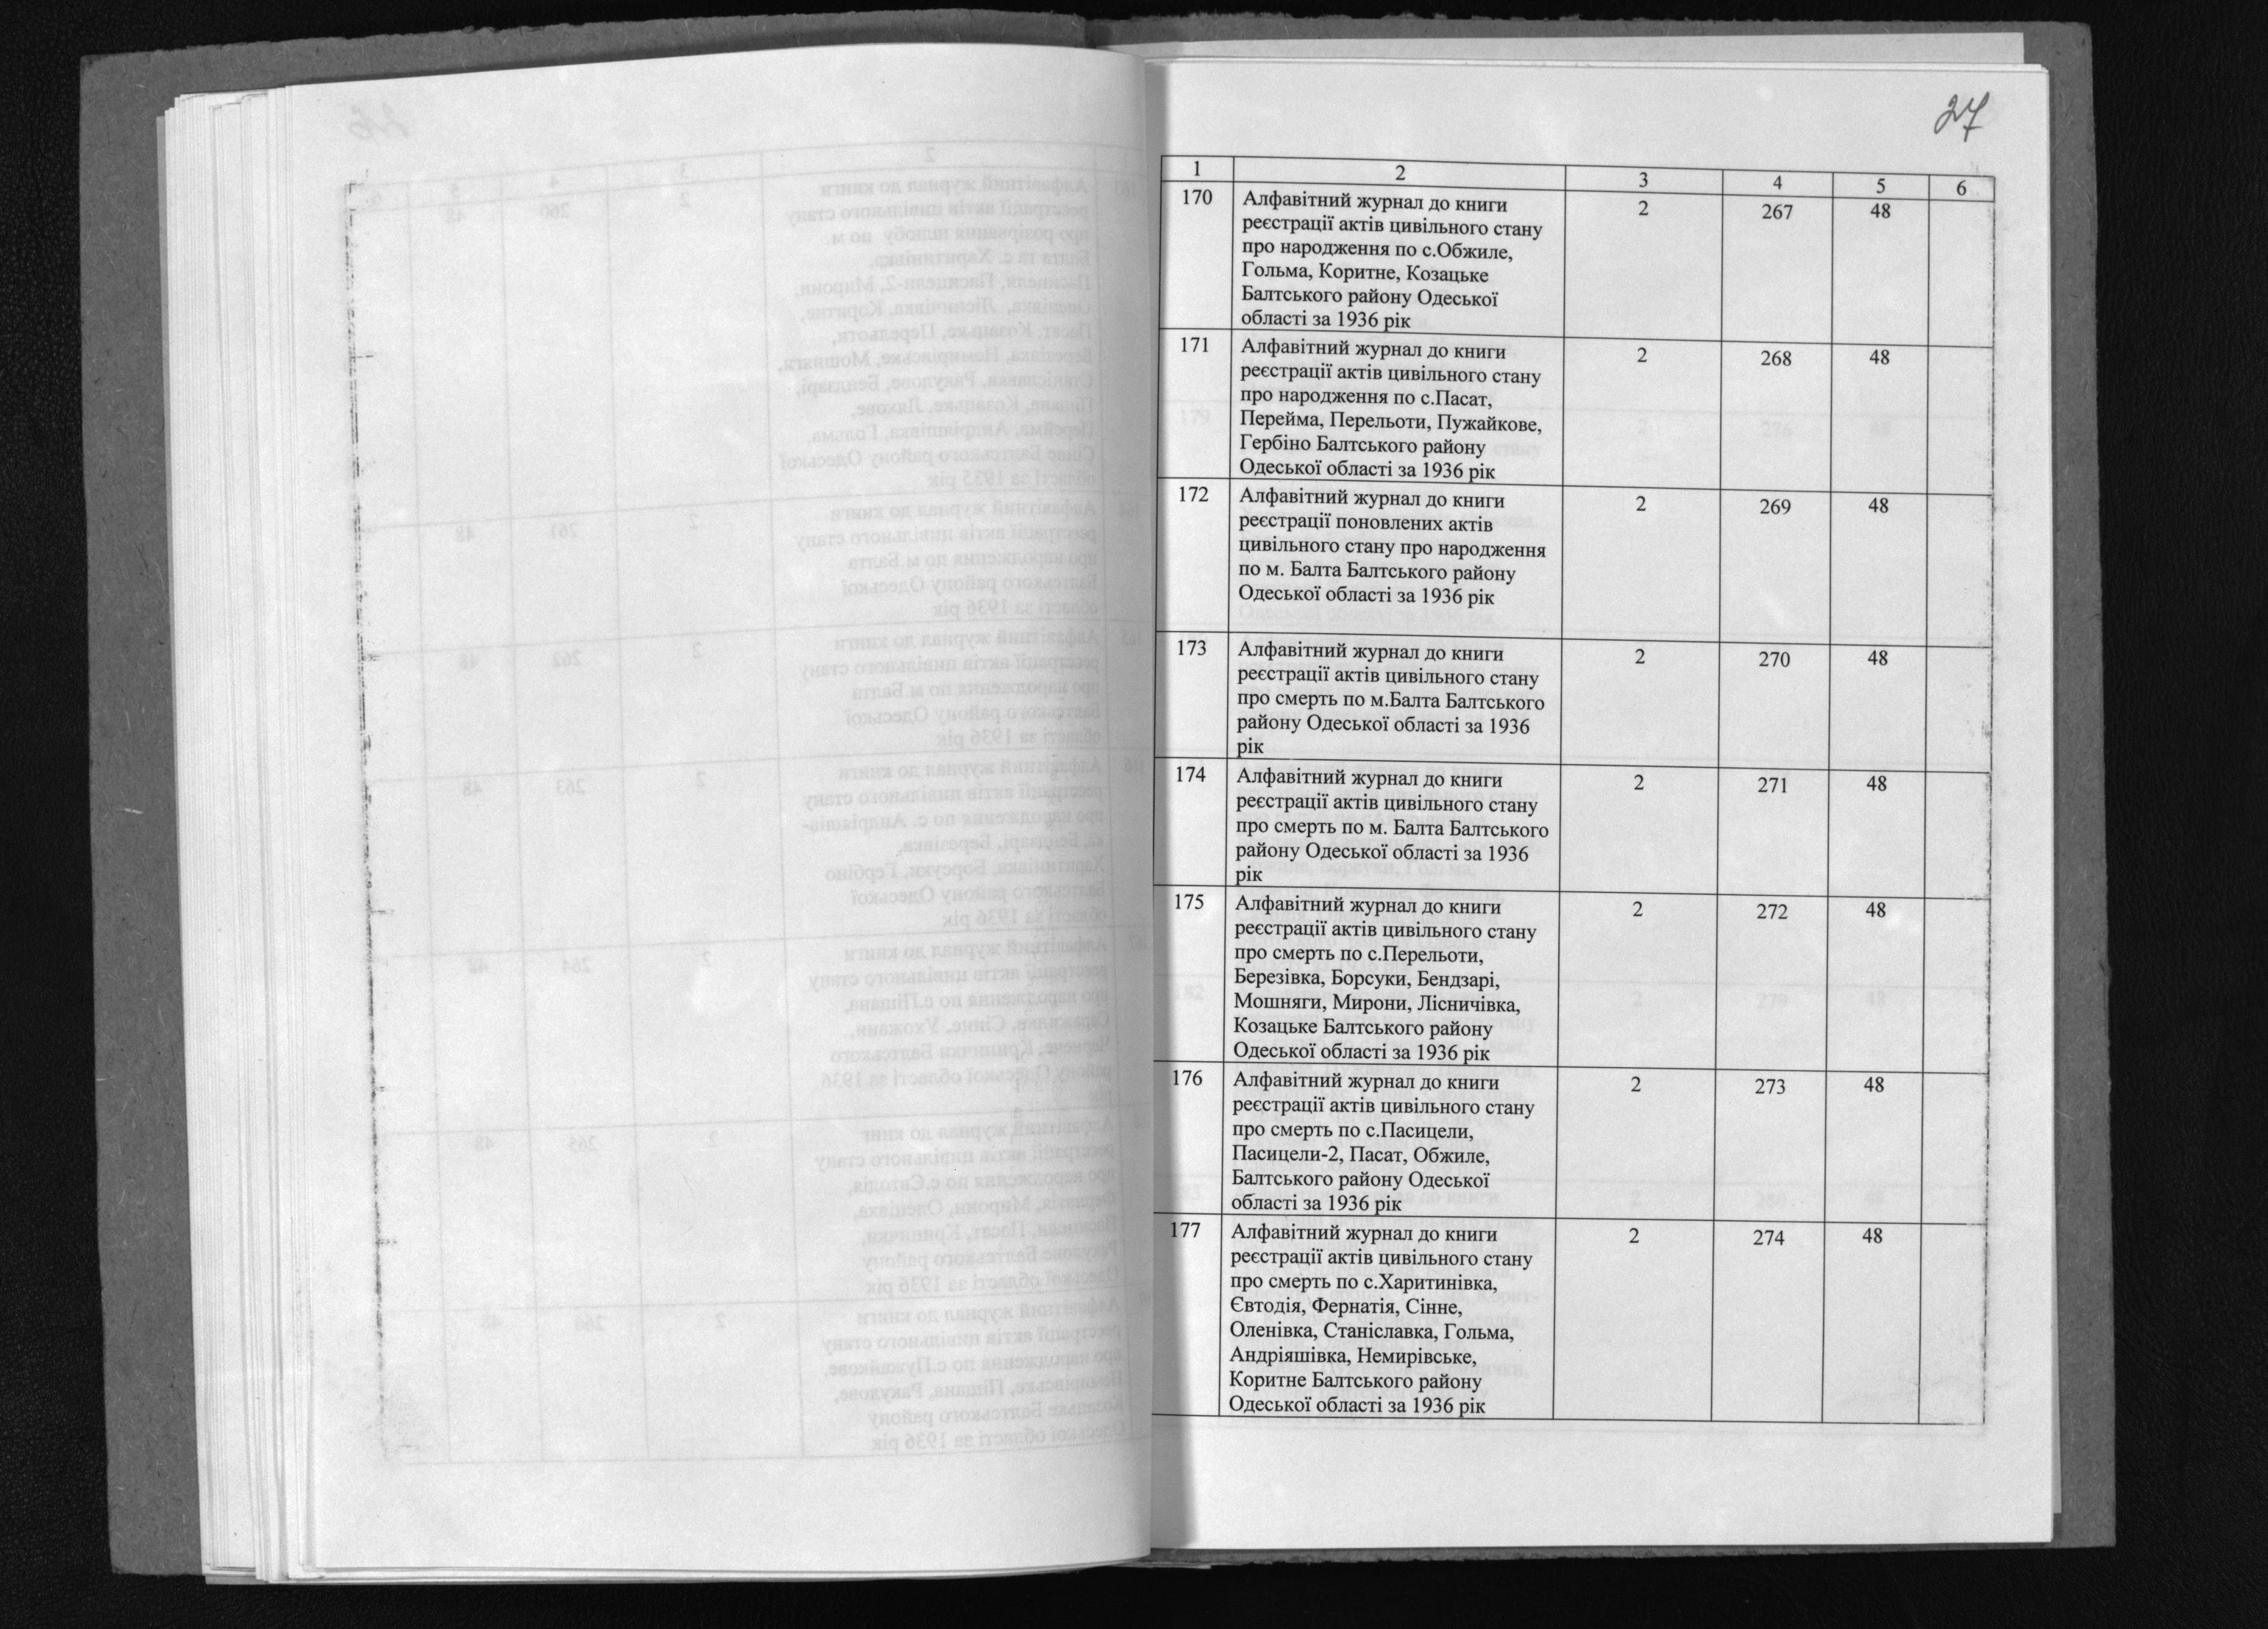 27
1 2 3 4 5 6
170 Алфавітний журнал до книги 2 267 48
реєстрації актів цивільного стану
про народження по с.Обжиле,
Гольма, Коритне, Козацьке
Балтського району Одеської
області за 1936 рік
171 Алфавітний журнал до книги 2 268 48
реєстрації актів цивільного стану
про народження по с.Пасат,
Перейма, Перельоти, Пужайкове,
Гербіно Балтського району
Одеської області за 1936 рік
172 Алфавітний журнал до книги 2 269 48
реєстрації поновлених актів
цивільного стану про народження
по м. Балта Балтського району
Одеської області за 1936 рік
173 Алфавітний журнал до книги 2 270 48
реєстрації актів цивільного стану
про смерть по м.Балта Балтського
району Одеської області за 1936
рік
174 Алфавітний журнал до книги 2 271 48
реєстрації актів цивільного стану
про смерть по м. Балта Балтського
району Одеської області за 1936
рік
175 Алфавітний журнал до книги 2 272 48
реєстрації актів цивільного стану
про смерть по с.Перельоти,
Березівка, Борсуки, Бендзарі,
Мошняги, Мирони, Лісничівка,
Козацьке Балтського району
Одеської області за 1936 рік
176 Алфавітний журнал до книги 2 273 48
реєстрації актів цивільного стану
про смерть по с.Пасицели,
Пасицели-2, Пасат, Обжиле,
Балтського району Одеської
області за 1936 рік
177 Алфавітний журнал до книги 2 274 48
реєстрації актів цивільного стану
про смерть по с.Харитинівка,
Євтодія, Фернатія, Сінне,
Оленівка, Станіславка, Гольма,
Андріяшівка, Немирівське,
Коритне Балтського району
Одеської області за 1936 рік